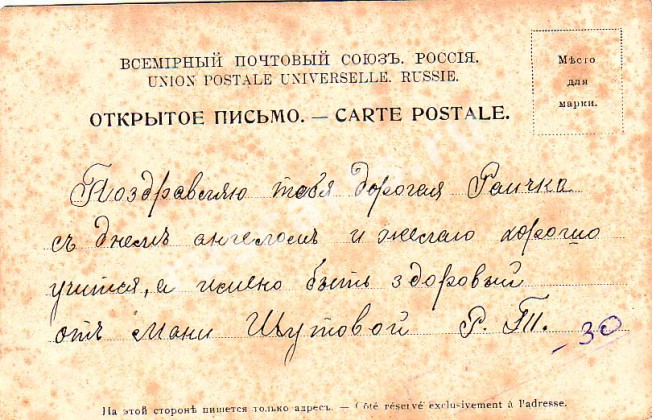 ВСЕМІРНЫЙ ПОЧТОВЫЙ СОЮЗЪ. РОССІЯ.
UNION POSTALE UNIVERSELLE. RUSSIE.
Мѣсто
для
марки.
ОТКРЫТОЕ ПИСЬМО. — CARTE POSTALE.
Поздравляю тебя дорогая Раичка
съ днемъ ангеломъ и желаю хорошо
учится, а имено быть здоровый
отъ Мани Шутовой Р. Т.
- 30
На этой сторонѣ пишется только адресъ. — Côté réservé exclusivement à l'adresse.